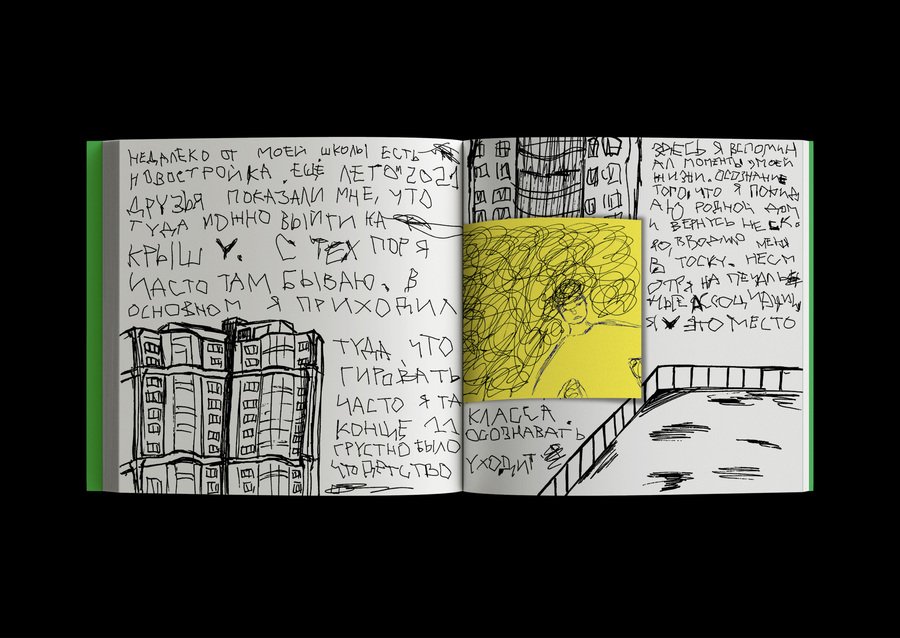 НЕДАЛЕКО ОТ МОЕЙ ШКОЛЫ ЕСТЬ
НОВОСТРОЙКА. ЕЩЁ ЛЕТОМ 2021
ДРУЗЬЯ ПОКАЗАЛИ МНЕ, ЧТО
ТУДА МОЖНО ВЫЙТИ НА
КРЫШУ. С ТЕХ ПОР Я
ЧАСТО ТАМ БЫВАЮ. В
ОСНОВНОМ Я ПРИХОДИЛ
ТУДА, ЧТО
ГИРОВАТЬ
ЧАСТО Я ТА
КОНЦЕ 11
ГРУСТНО БЫЛО
ЧТО ДЕТСТВО
КЛАССА.
ОСОЗНАВАТЬ
УХОДИТ
ЗДЕСЬ Я ВСПОМИН
АЛ МОМЕНТЫ МОЕЙ
ЖИЗНИ. ОСОЗНАНИЕ
ТОГО, ЧТО Я ПОКИД
АЮ РОДНОЙ ДОМ
И ВЕРНУСЬ НЕ СК
РО, ВВОДИЛО МЕНЯ
В ТОСКУ. НЕСМ
ОТРЯ НА ПЕЧАЛЬ
НЫЕ АССОЦИАЦИИ,
Я ♥ ЭТО МЕСТО